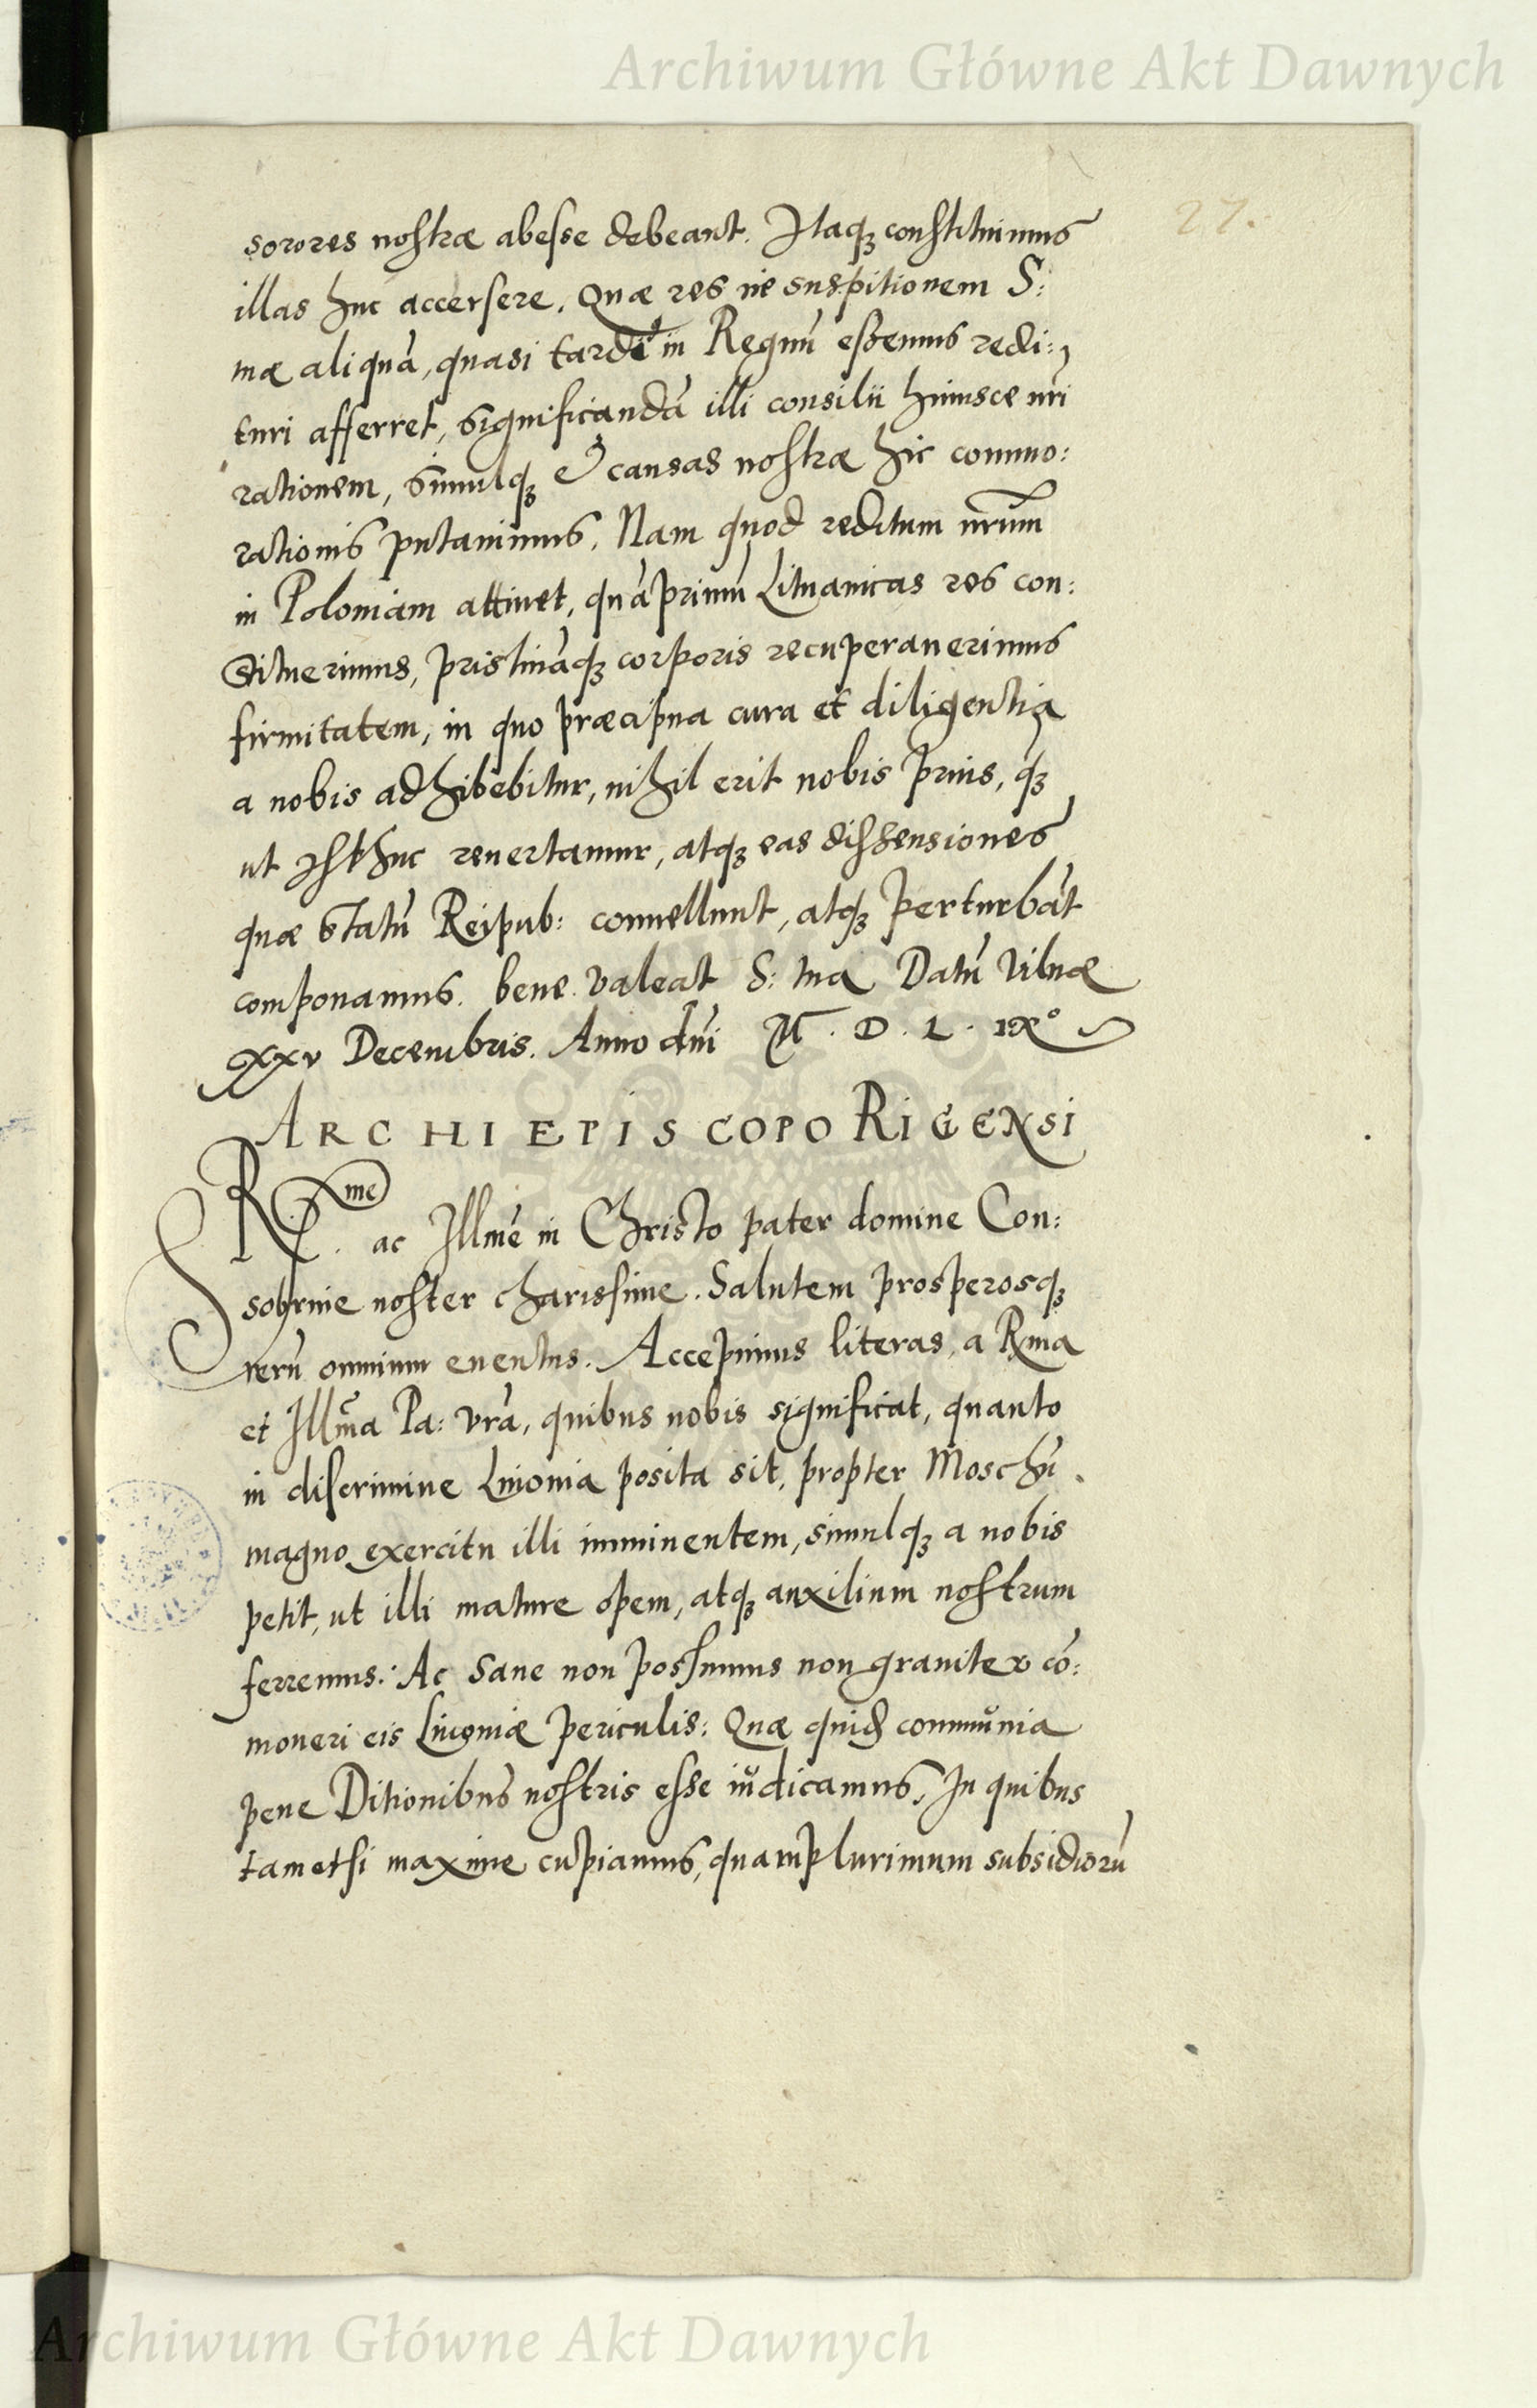 Archiwum Główne Akt Dawnych
27.
sorores nostræ abesse debeant. Itaqꝫ constituimus
illas huc accersere. Quæ res ne suspitionem S:
tuæ aliquā, quasi tardè in Regnū essemus redi:
turi afferret, significandā illi consilii huiusce nr̄i
rationem, simulqꝫ & causas nostræ hic commo:
rationis putauimus. Nam quod reditum nrūm
in Poloniam attinet, quāprimū Lituanicas res con:
stituerimus, pristināqꝫ corporis recuperauerimus
firmitatem, in quo præcipua cura et diligentia
a nobis adhibebitur, nihil erit nobis prius, qꝫ
ut isthuc reuertamur, atqꝫ eas dissensiones
quæ statū Reipub: conuellunt, atqꝫ perturbāt
componamus. bene valeat S: tua Datū Vilnæ
xxv Decembris. Anno dn̄i M. D. L. IX°
ARCHIEPISCOPO RIGENSI
R.me ac Illmē in Christo pater domine Con:
sobrine noster charissime. Salutem prosperosqꝫ
rerū omnium euentus. Accepimus literas a Rma
et Illm̄a Pa: vrā, quibus nobis significat, quanto
in discrimine Liuonia posita sit, propter Moschū
magno exercitu illi imminentem, simulqꝫ a nobis
petit, ut illi mature opem, atqꝫ auxilium nostrum
ferremus: Ac sane non possumus non grauiter cō:
moueri eis Liuoniæ periculis: Quæ quidꝫ commŭnia
pene Ditionibus nostris esse iŭdicamus. In quibus
tametsi maxime cupiamus, quamplurimum subsidiorū
Archiwum Główne Akt Dawnych